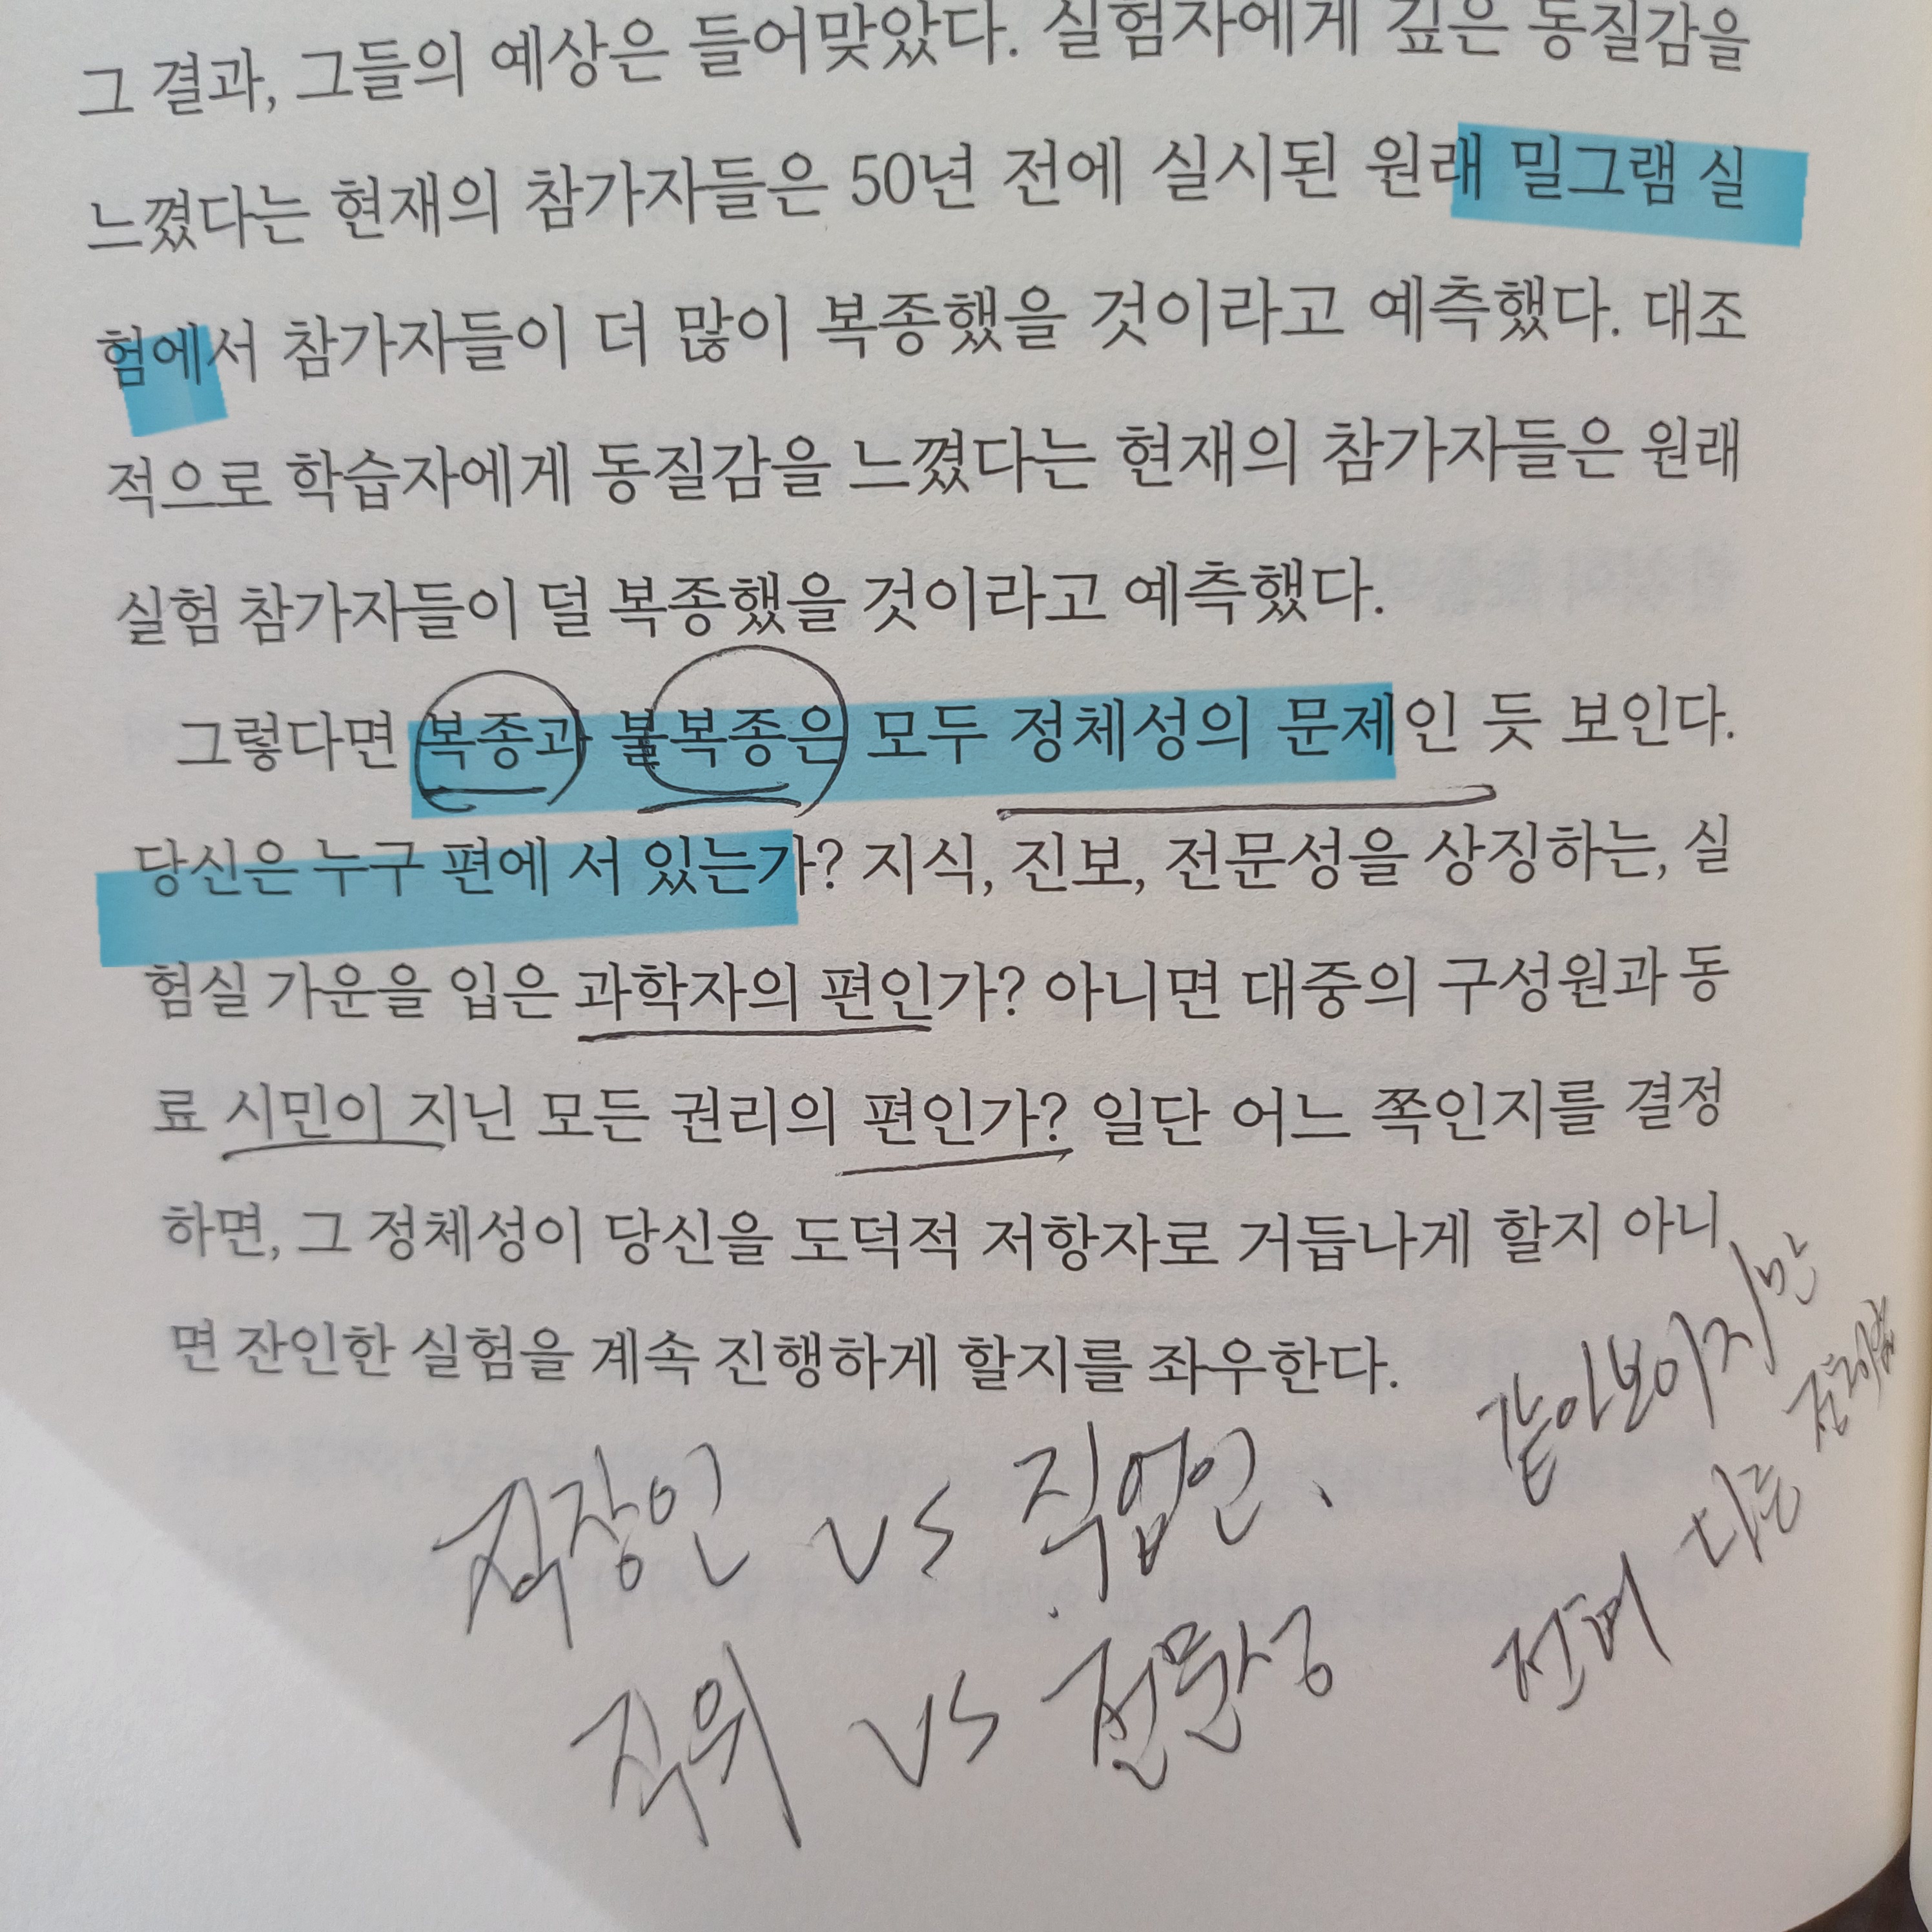 그 결과, 그들의 예상은 들어맞았다. 실험자에게 깊은 동질감을
느꼈다는 현재의 참가자들은 50년 전에 실시된 원래 밀그램 실
험에서 참가자들이 더 많이 복종했을 것이라고 예측했다. 대조
적으로 학습자에게 동질감을 느꼈다는 현재의 참가자들은 원래
실험 참가자들이 덜 복종했을 것이라고 예측했다.
그렇다면 복종과 불복종은 모두 정체성의 문제인 듯 보인다.
당신은 누구 편에 서 있는가? 지식, 진보, 전문성을 상징하는, 실
험실 가운을 입은 과학자의 편인가? 아니면 대중의 구성원과 동
료 시민이 지닌 모든 권리의 편인가? 일단 어느 쪽인지를 결정
하면, 그 정체성이 당신을 도덕적 저항자로 거듭나게 할지 아니
면 잔인한 실험을 계속 진행하게 할지를 좌우한다.
직장인 vs 직업인.
직위 vs 전문성
같아보이지만
다른